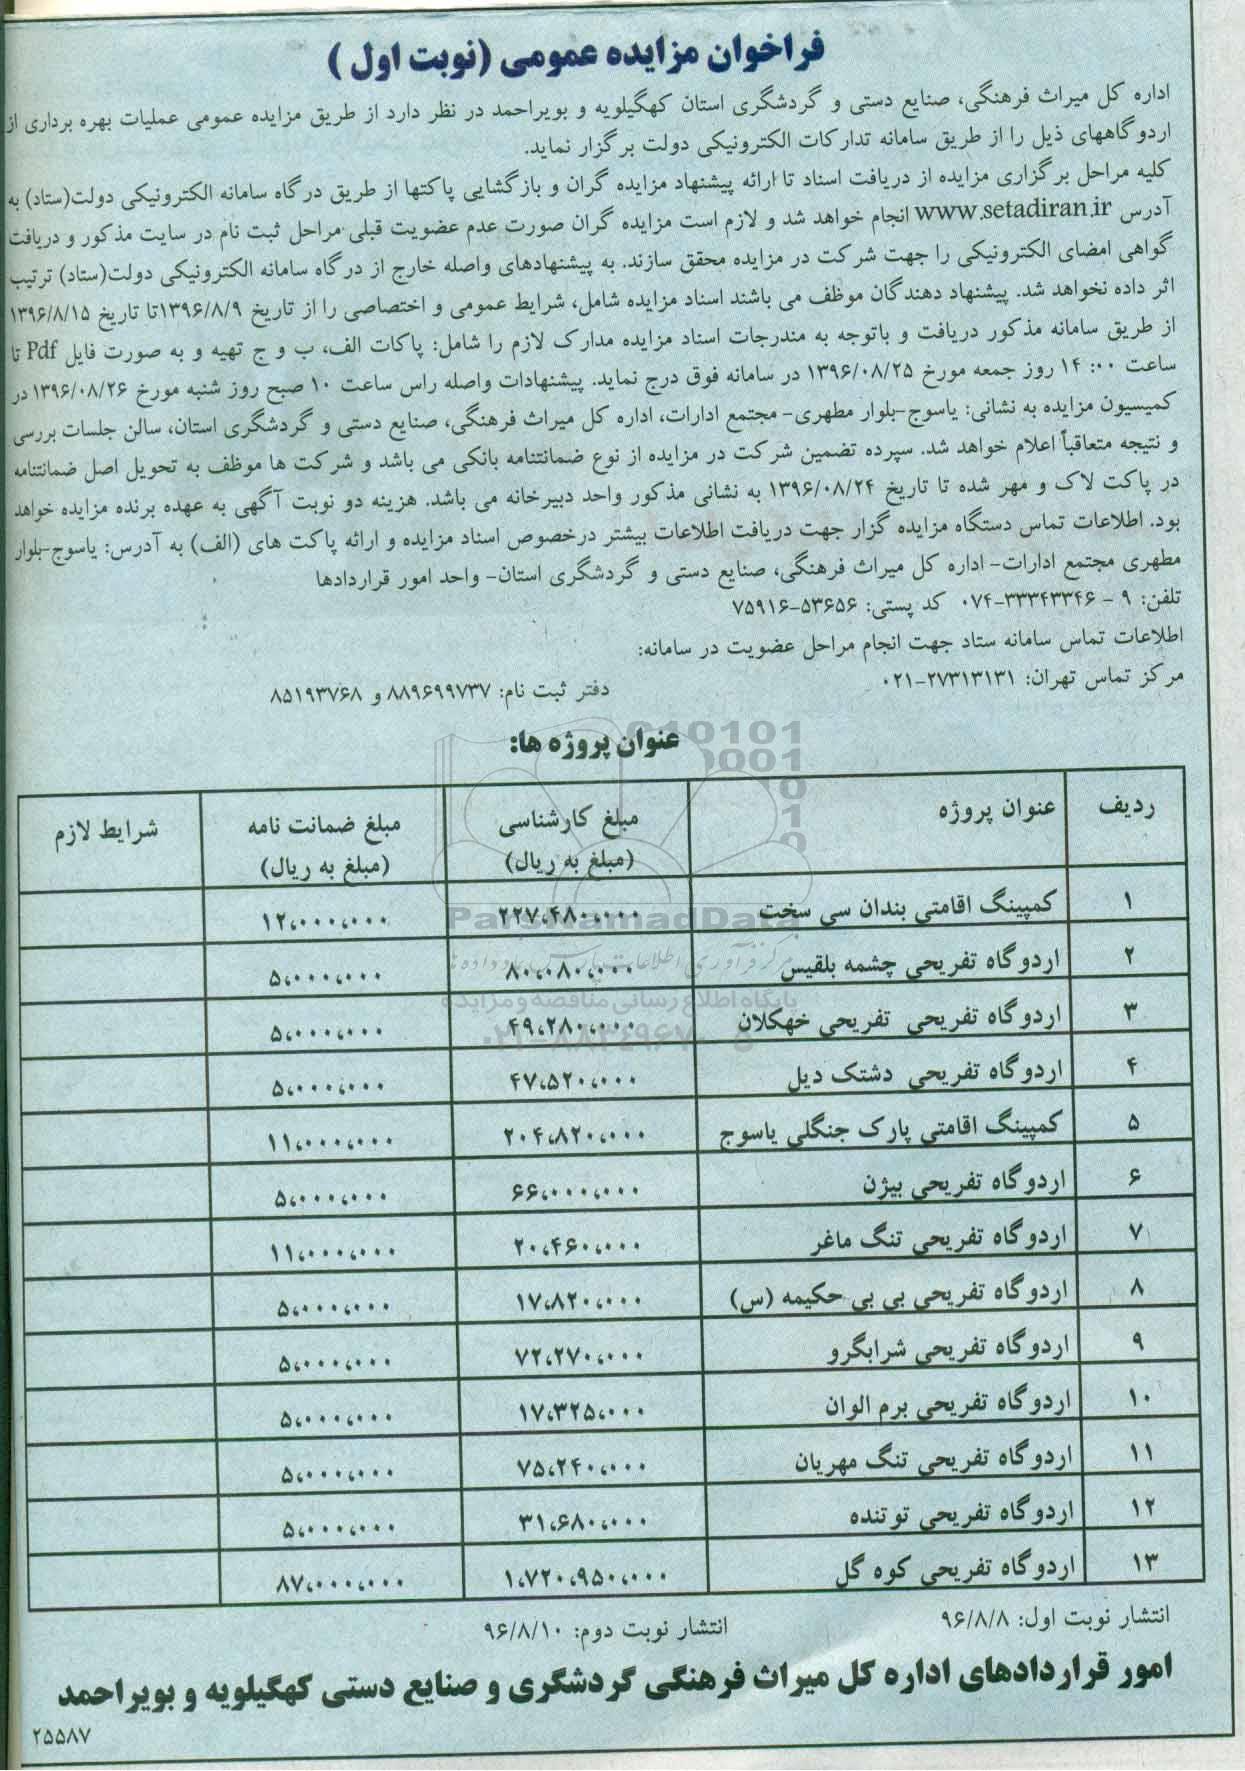 فراخوان مزایده عمومی (نوبت اول )
اداره کل میراث فرهنگی، صنایع دستی و گردشگری استان کهگیلویه و بویراحمد در نظر دارد از طریق مزایده عمومی عملیات بهره برداری از
اردوگاههای ذیل را از طریق سامانه تدارکات الکترونیکی دولت برگزار نماید.
کلیه مراحل برگزاری مزایده از دریافت اسناد تا ارائه پیشنهاد مزایده گران و بازگشایی پاکتها از طریق درگاه سامانه الکترونیکی دولت(ستاد) به
آدرس www.setadiran.ir انجام خواهد شد و لازم است مزایده گران صورت عدم عضویت قبلی مراحل ثبت نام در سایت مذکور و دریافت
گواهی امضای الکترونیکی را جهت شرکت در مزایده محقق سازند. به پیشنهادهای واصله خارج از درگاه سامانه الکترونیکی دولت(ستاد) ترتیب
اثر داده نخواهد شد. پیشنهاد دهندگان موظف می باشند اسناد مزایده شامل، شرایط عمومی و اختصاصی را از تاریخ ۱۳۹۶/۸/۹تا تاریخ ۱۳۹۶/۸/۱۵
از طریق سامانه مذکور دریافت و باتوجه به مندرجات اسناد مزایده مدارک لازم را شامل: پاکات الف، ب و ج تهیه و به صورت فایل Pdf تا
ساعت ۰۰: ۱۴ روز جمعه مورخ ۱۳۹۶/۰۸/۲۵ در سامانه فوق درج نماید. پیشنهادات واصله راس ساعت ۱۰ صبح روز شنبه مورخ ۱۳۹۶/۰۸/۲۶ در
کمیسیون مزایده به نشانی: یاسوج-بلوار مطهری- مجتمع ادارات، اداره کل میراث فرهنگی، صنایع دستی و گردشگری استان، سالن جلسات بررسی
و نتیجه متعاقباً اعلام خواهد شد. سپرده تضمین شرکت در مزایده از نوع ضمانتنامه بانکی می باشد و شرکت ها موظف به تحویل اصل ضمانتنامه
در پاکت لاک و مهر شده تا تاریخ ۱۳۹۶/۰۸/۲۴ به نشانی مذکور واحد دبیرخانه می باشد. هزینه دو نوبت آگهی به عهده برنده مزایده خواهد
بود. اطلاعات تماس دستگاه مزایده گزار جهت دریافت اطلاعات بیشتر درخصوص اسناد مزایده و ارائه پاکت های (الف) به آدرس: یاسوج-بلوار
مطهری مجتمع ادارات- اداره کل میراث فرهنگی، صنایع دستی و گردشگری استان- واحد امور قراردادها
تلفن: ۹ - ۳۳۳۴۳۳۴۶-۰۷۴ کد پستی: ۵۳۶۵۶-۷۵۹۱۶
اطلاعات تماس سامانه ستاد جهت انجام مراحل عضویت در سامانه:
مرکز تماس تهران: ۲۷۳۱۳۱۳۱-۰۲۱ دفتر ثبت نام: ۸۸۹۶۹۹۷۳۷ و ۸۵۱۹۳۷۶۸
عنوان پروژه ها:
ردیف عنوان پروژه مبلغ کارشناسی (مبلغ به ریال) مبلغ ضمانت نامه (مبلغ به ریال) شرایط لازم
۱ کمپینگ اقامتی بندان سی سخت ۲۲۷،۴۸۰،۰۰۰ ۱۲،۰۰۰،۰۰۰
۲ اردوگاه تفریحی چشمه بلقیس ۸۰،۰۸۰،۰۰۰ ۵،۰۰۰،۰۰۰
۳ اردوگاه تفریحی تفریحی خهکلان ۴۹،۲۸۰،۰۰۰ ۵،۰۰۰،۰۰۰
۴ اردوگاه تفریحی دشتک دیل ۴۷،۵۲۰،۰۰۰ ۵،۰۰۰،۰۰۰
۵ کمپینگ اقامتی پارک جنگلی یاسوج ۲۰۴،۸۲۰،۰۰۰ ۱۱،۰۰۰،۰۰۰
۶ اردوگاه تفریحی بیژن ۶۶،۰۰۰،۰۰۰ ۵،۰۰۰،۰۰۰
۷ اردوگاه تفریحی تنگ ماغر ۲۰،۴۶۰،۰۰۰ ۱۱،۰۰۰،۰۰۰
۸ اردوگاه تفریحی بی بی حکیمه (س) ۱۷،۸۲۰،۰۰۰ ۵،۰۰۰،۰۰۰
۹ اردوگاه تفریحی شرابگرو ۷۲،۲۷۰،۰۰۰ ۵،۰۰۰،۰۰۰
۱۰ اردوگاه تفریحی برم الوان ۱۷،۳۲۵،۰۰۰ ۵،۰۰۰،۰۰۰
۱۱ اردوگاه تفریحی تنگ مهریان ۷۵،۲۴۰،۰۰۰ ۵،۰۰۰،۰۰۰
۱۲ اردوگاه تفریحی توتنده ۳۱،۶۸۰،۰۰۰ ۵،۰۰۰،۰۰۰
۱۳ اردوگاه تفریحی کوه گل ۱،۷۲۰،۹۵۰،۰۰۰ ۸۷،۰۰۰،۰۰۰
انتشار نوبت اول: ۹۶/۸/۸ انتشار نوبت دوم: ۹۶/۸/۱۰
امور قراردادهای اداره کل میراث فرهنگی گردشگری و صنایع دستی کهگیلویه و بویراحمد
۲۵۵۸۷
ParsNamadData
پایگاه اطلاع رسانی مناقصه و مزایده